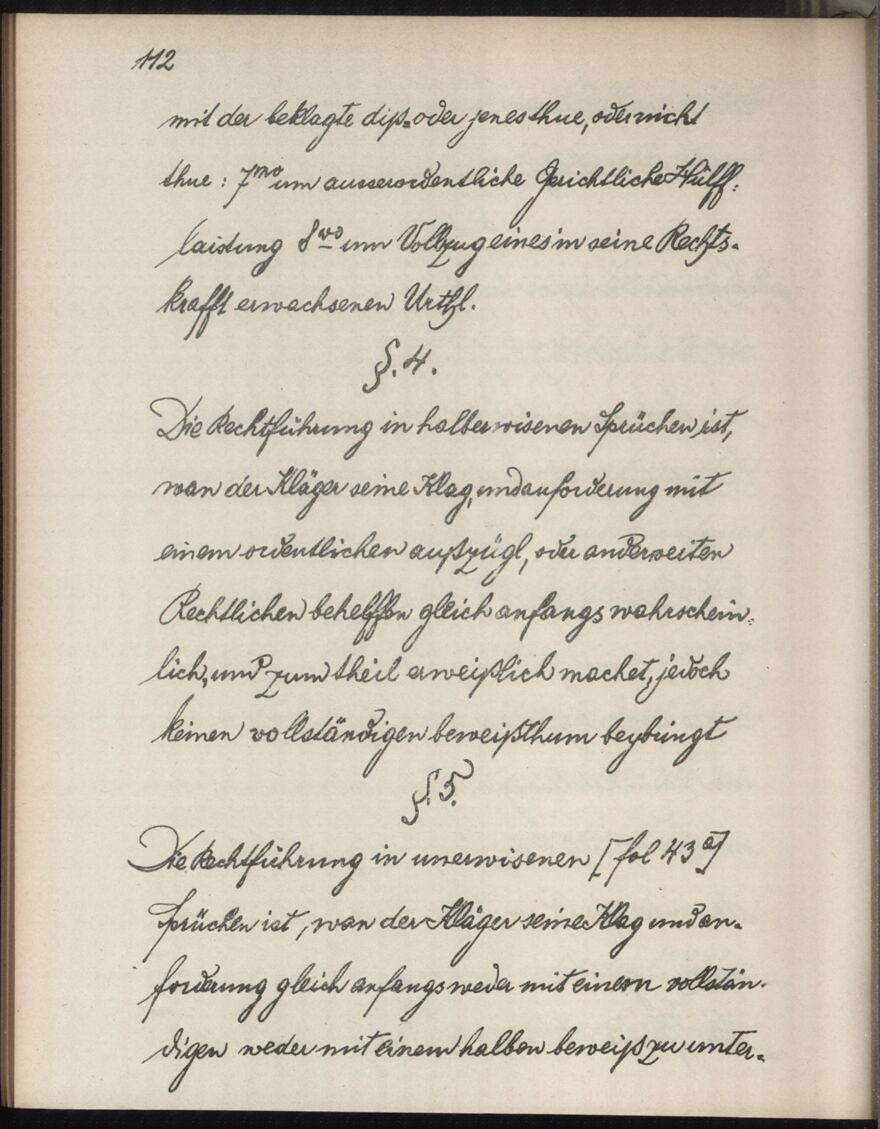 112
mit der beklagte diß oder jenes thue, oder nicht
thue: 7mo um ausserordentliche Gerichtliche Hülff-
laistung 8vo um Vollzug eines in seine Rechts-
krafft erwachsenen Urthl.
§. 4.
Die Rechtführung in halberwisenen Sprüchen ist,
wan der Kläger seine Klag, und anforderung mit
einem ordentlichen außzügl, oder anderweiten
Rechtlichen behelffen gleich anfangs wahrschein-
lich, und zum theil erweißlich machet, jedoch
keinen vollständigen beweißthum beybringt
§. 5.
Die Rechtführung in unerwisenen [fol 43a]
Sprüchen ist, wan der Kläger seine Klag und an-
forderung gleich anfangs weder mit einem vollstän-
digen weder mit einem halben beweiß zu unter-